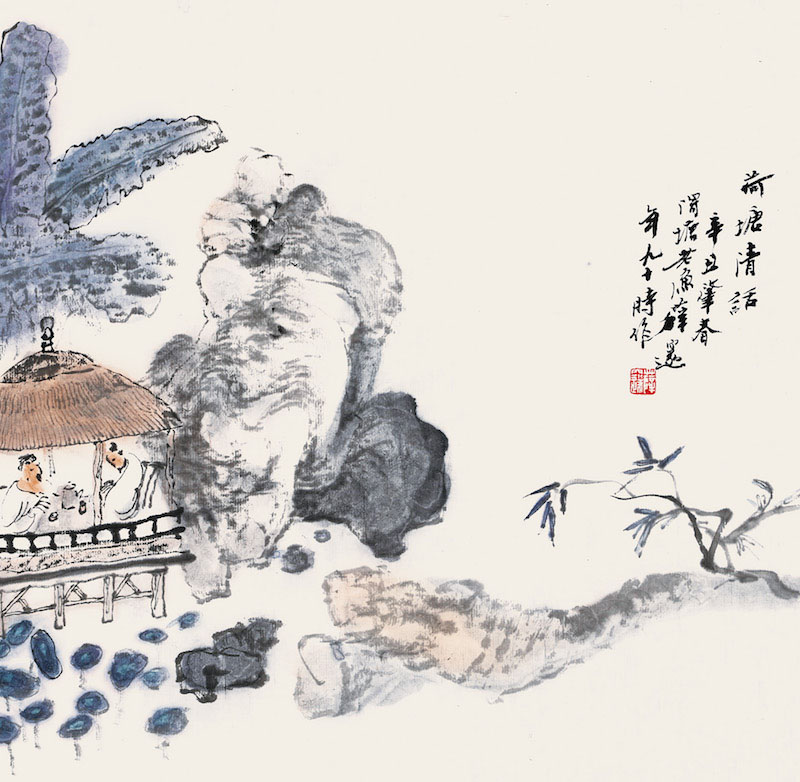 荷塘清話
辛丑肇春
渭塘老漁薛邃
年九十時作